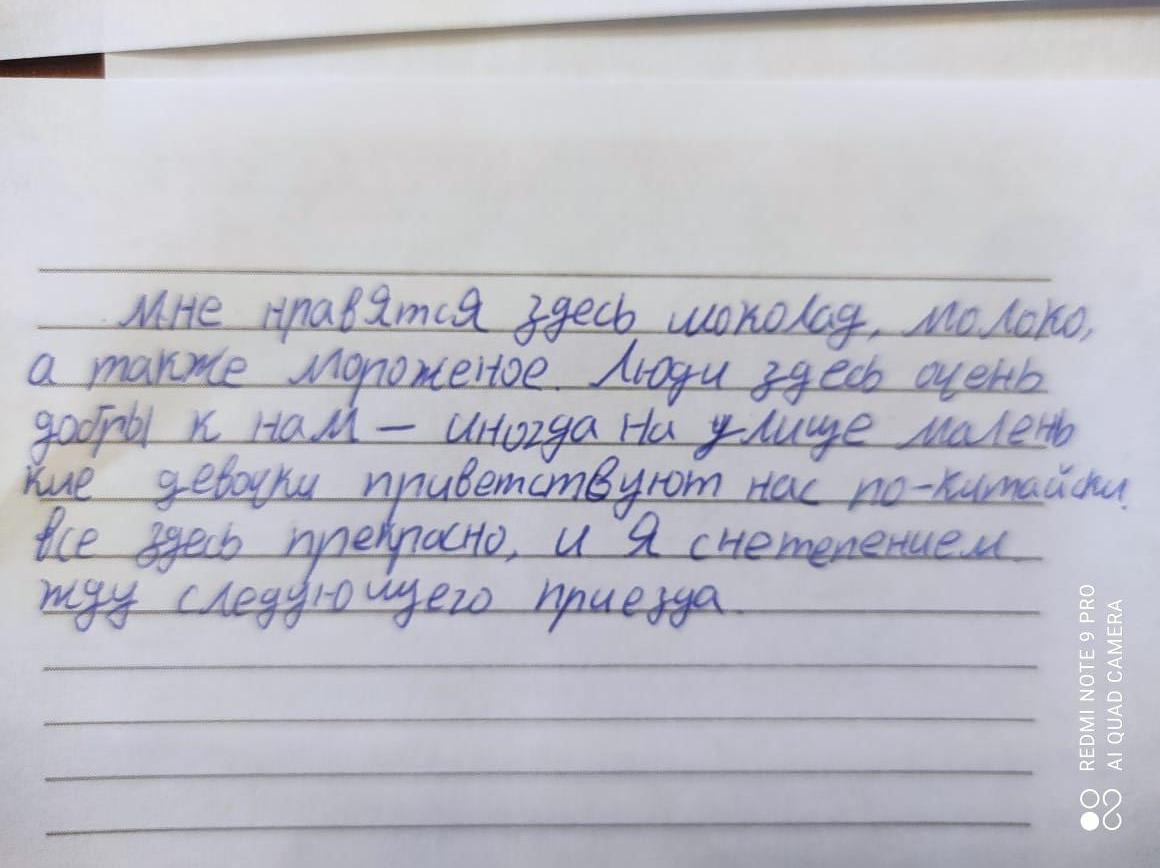 Мне нравятся здесь шоколад, молоко,
а также мороженое. Люди здесь очень
добры к нам — иногда на улице малень
кие девочки приветствуют нас по-китайски.
все здесь прекрасно, и я снетепением
жду следующего приезда.
REDMI NOTE 9 PRO
AI QUAD CAMERA